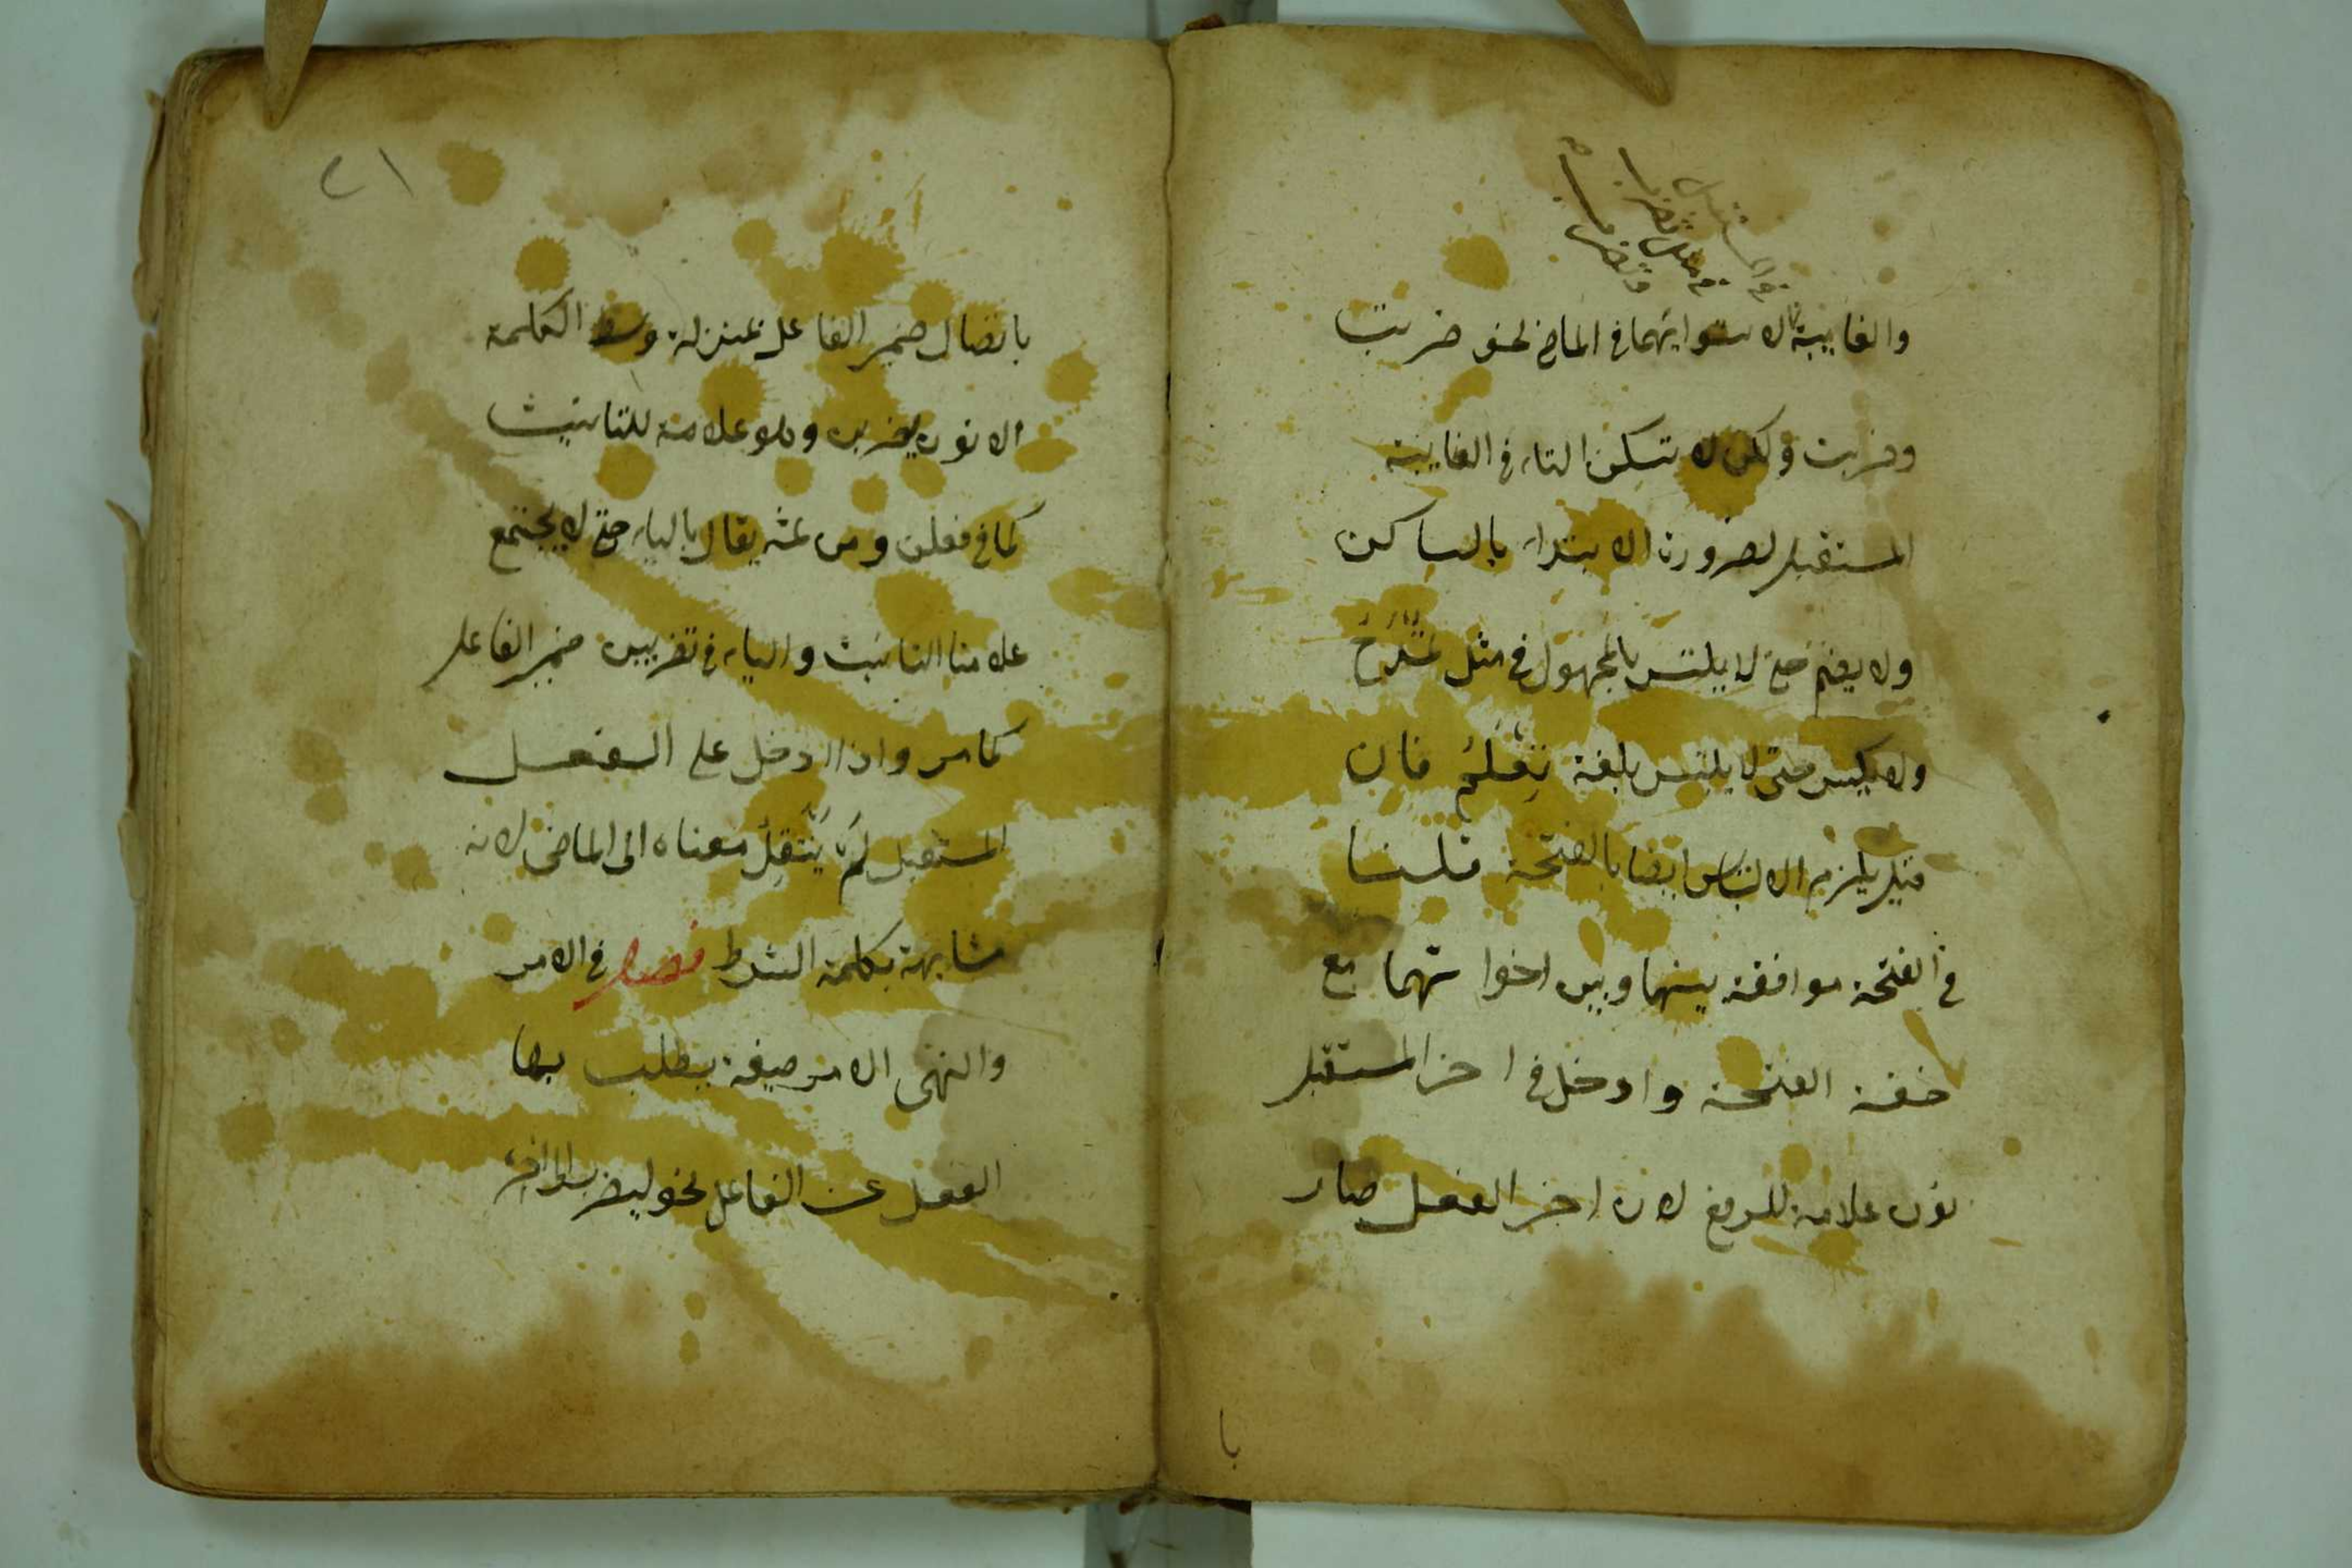 في المستقبل
في مثل تضربا
وتضربـا
والغايبة لاستوايهما في الماضي نحو ضربت
وضربت ولكن لا تسكن التاء في الغايبة
المستقبل لضرورة الابتداء بالساكن
ولا يضم حتى لا يلتبس بالمجهول في مثل تمدح
ولا يكسر حتى لا يلتبس بلغة تِعْلَمُ فان
قيل يلزم الالتباس ايضا بالفتحة قلنا
في الفتحة موافقة بينها وبين اخواتهما مع
خفة الفتحة وادخل في اخر المستقبل
نون علامة للرفع لان اخر الفعل صار
با
٢١
باتصال ضمير الفاعل بمنزلة وسط الكلمة
الا نون يضربن وهو علامة للتانيث
كما في فعلن ومن ثمه يقال بالياء حتى لا يجتمع
علامتا التانيث والياء في تضربين ضمير الفاعل
كامر واذا ادخل على الفعل
المستقبل لَم يَنْتَقِل معناه الى الماضى لانه
مشابهة بكلمة الشرط فصل في الامر
والنهى الامر صيغة يطلب بها
الفعل عن الفاعل نحو ليضرب الى اخره